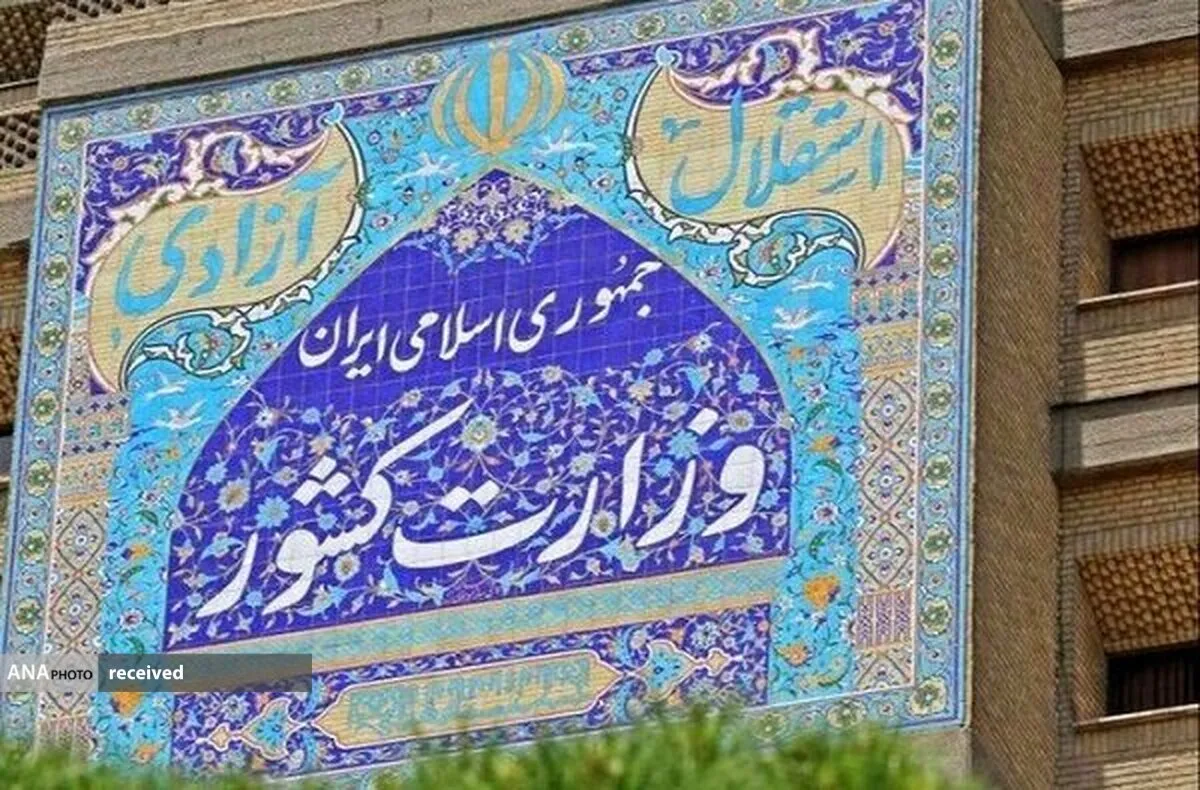 استقلال
آزادی
جمهوری اسلامی ایران
وزارت کشور
ANA PHOTO received